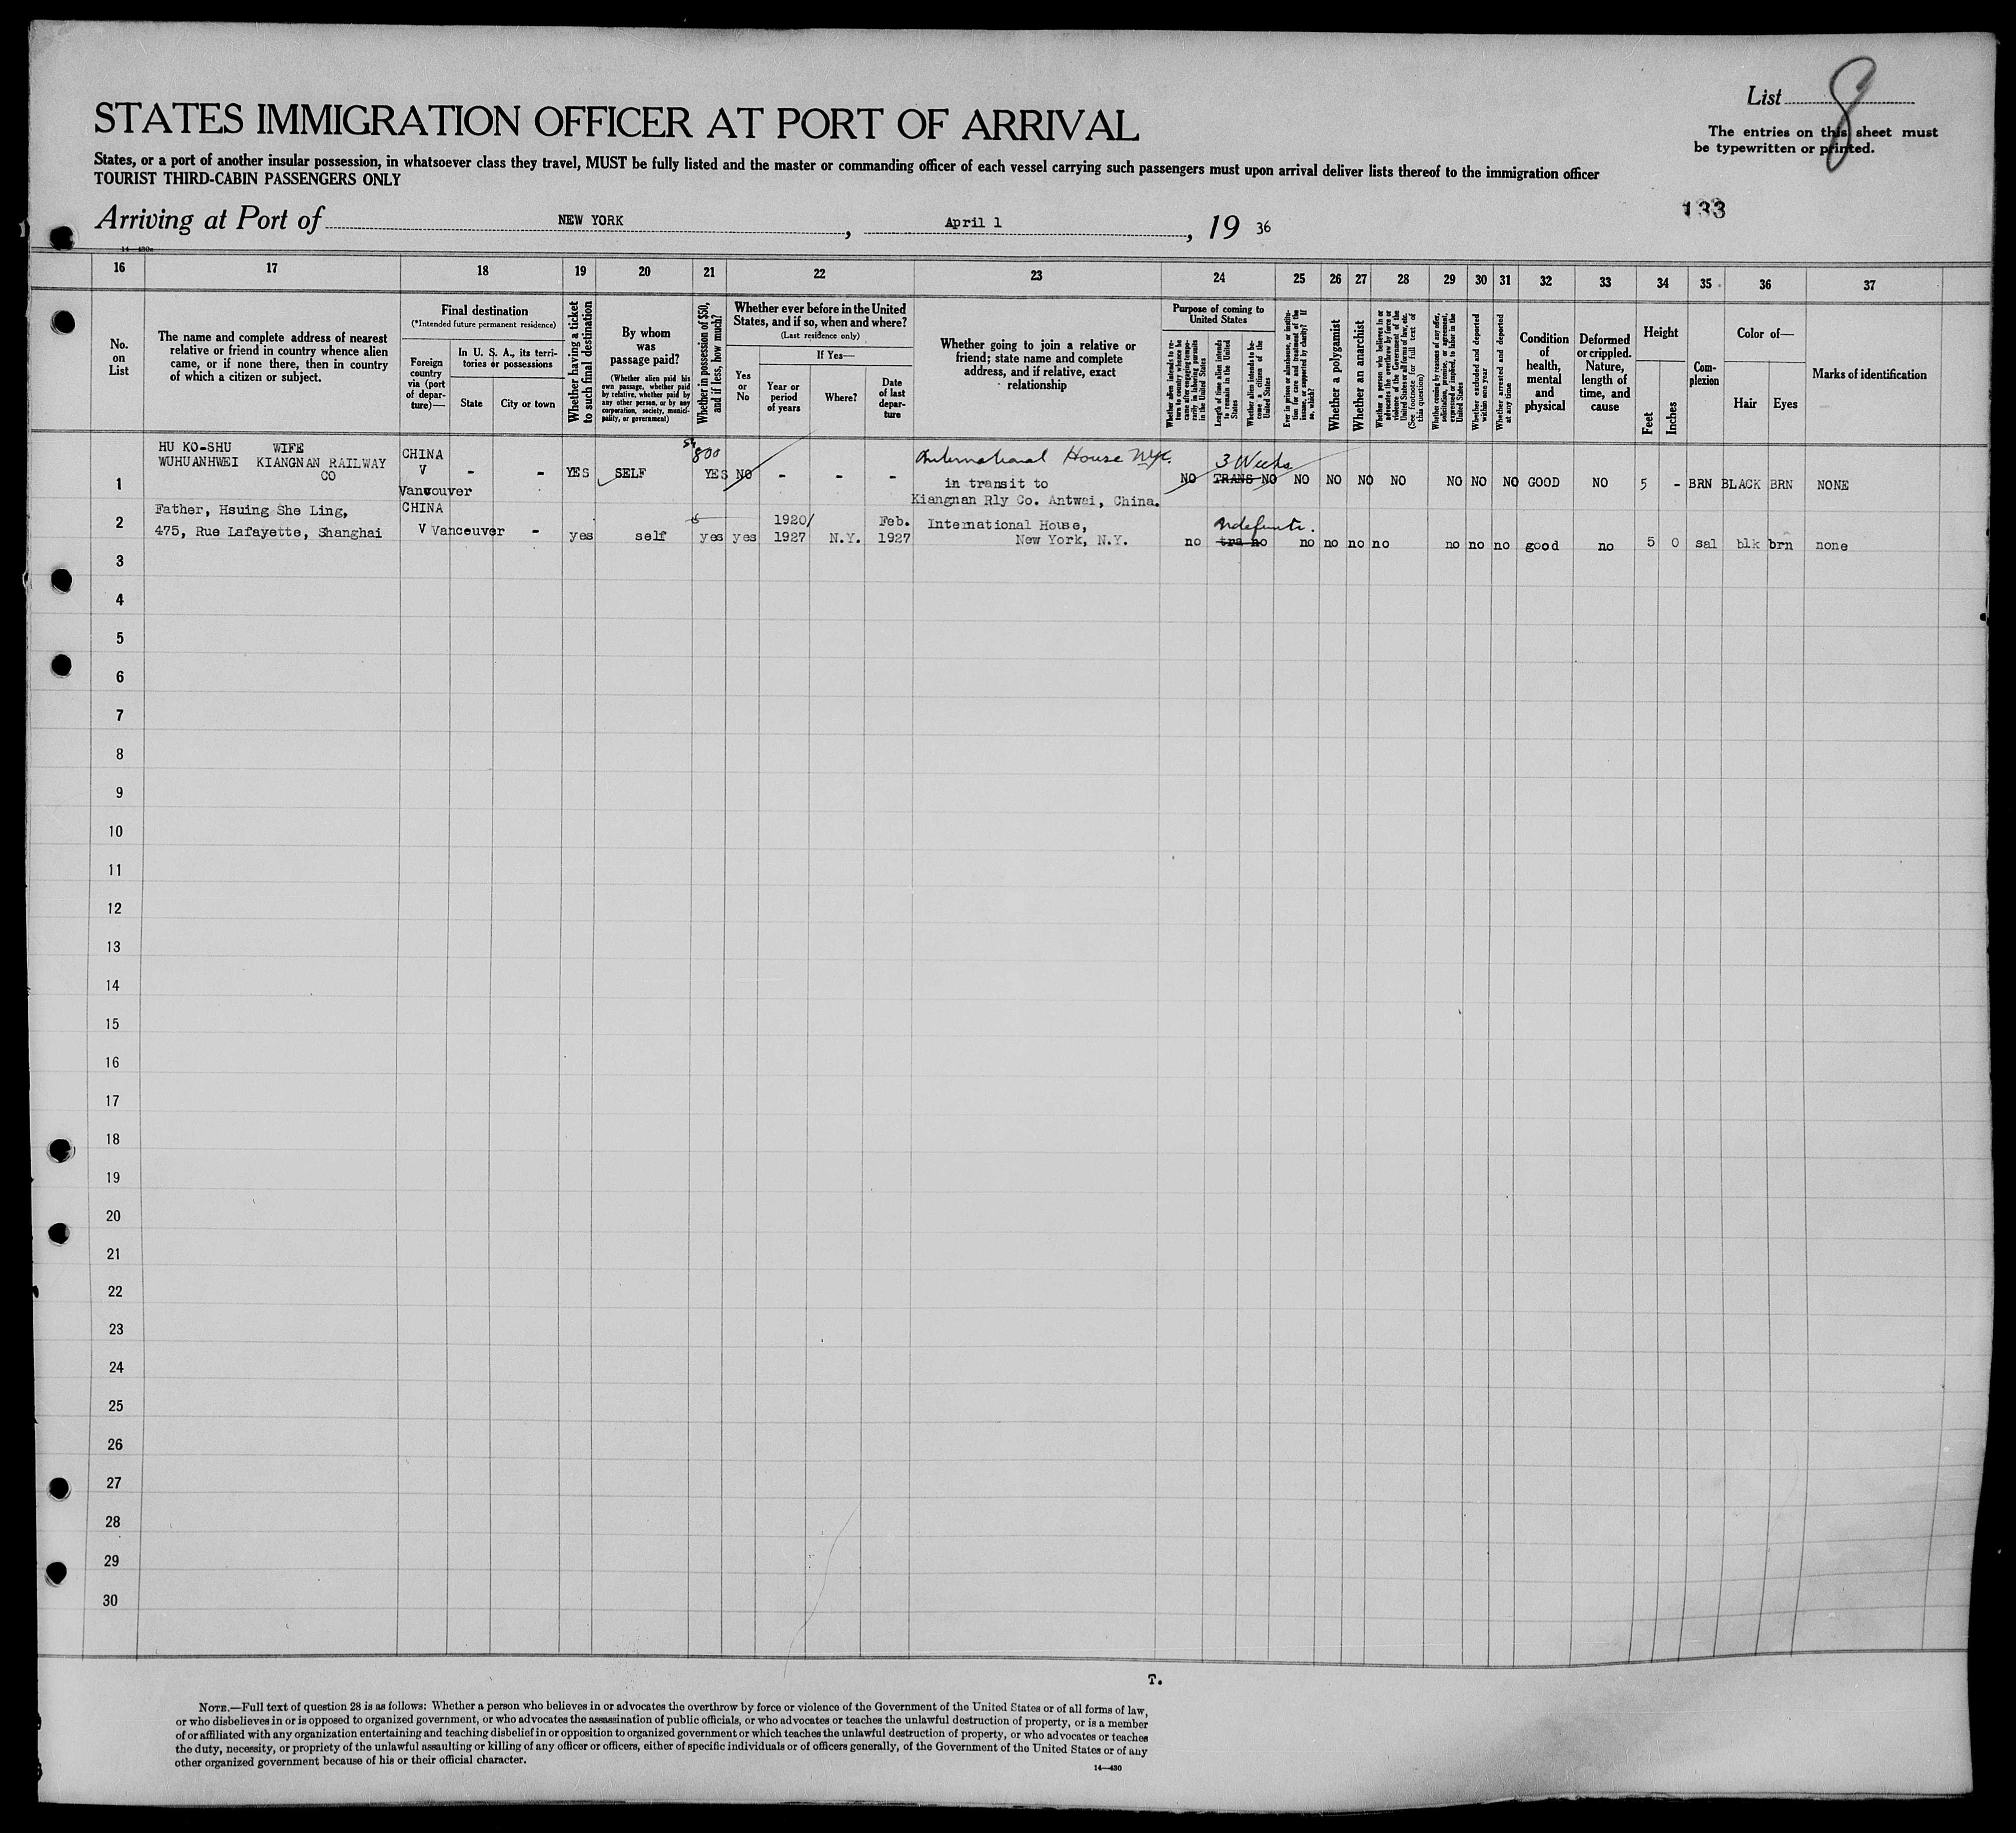 List 8
STATES IMMIGRATION OFFICER AT PORT OF ARRIVAL
The entries on this sheet must
be typewritten or printed.
States, or a port of another insular possession, in whatsoever class they travel, MUST be fully listed and the master or commanding officer of each vessel carrying such passengers must upon arrival deliver lists thereof to the immigration officer
TOURIST THIRD-CABIN PASSENGERS ONLY
133
Arriving at Port of NEW YORK, April 1, 19 36
14—430a
16 17 18 19 20 21 22 23 24 25 26 27 28 29 30 31 32 33 34 35 36 37
No. on List
The name and complete address of nearest
relative or friend in country whence alien
came, or if none there, then in country
of which a citizen or subject.
Final destination
(*Intended future permanent residence)
Foreign country via (port of departure)—
In U. S. A., its territories or possessions
State
City or town
Whether having a ticket to such final destination
By whom was passage paid?
(Whether alien paid his own passage, whether paid by relative, whether paid by any other person, or by any corporation, society, municipality, or government)
Whether in possession of $50, and if less, how much?
Whether ever before in the United States, and if so, when and where?
(Last residence only)
Yes or No
If Yes—
Year or period of years
Where?
Date of last departure
Whether going to join a relative or
friend; state name and complete
address, and if relative, exact
relationship
Purpose of coming to United States
Whether alien intends to return to country whence he came after engaging temporarily in laboring pursuits in the United States
Length of time alien intends to remain in the United States
Whether alien intends to become a citizen of the United States
Ever in prison or almshouse, or institution for care and treatment of the insane, or supported by charity? If so, which?
Whether a polygamist
Whether an anarchist
Whether a person who believes in or advocates the overthrow by force or violence of the Government of the United States or all forms of law, etc. (See footnote for full text of this question)
Whether coming by reasons of any offer, solicitation, promise, or agreement, expressed or implied, to labor in the United States
Whether excluded and deported within one year
Whether arrested and deported at any time
Condition of health, mental and physical
Deformed or crippled. Nature, length of time, and cause
Height
Feet
Inches
Complexion
Color of—
Hair
Eyes
Marks of identification
1 HU KO-SHU WIFE
WUHUANHWEI KIANGNAN RAILWAY
CO
CHINA
V - -
Vancouver
YES SELF 800 YES NO - - -
International House NYC.
in transit to
Kiangnan Rly Co. Antwei, China.
3 Weeks
NO TRANS NO NO NO NO NO NO NO NO GOOD NO 5 - BRN BLACK BRN NONE
2 Father, Hsuing She Ling,
475, Rue Lafayette, Shanghai
CHINA
V Vancouver -
yes self yes yes 1920/
1927 N.Y. Feb.
1927
International House,
New York, N.Y.
Indefinite.
no tra no no no no no no no no good no 5 0 sal blk brn none
3
4
5
6
7
8
9
10
11
12
13
14
15
16
17
18
19
20
21
22
23
24
25
26
27
28
29
30
T.
NOTE.—Full text of question 28 is as follows: Whether a person who believes in or advocates the overthrow by force or violence of the Government of the United States or of all forms of law,
or who disbelieves in or is opposed to organized government, or who advocates the assassination of public officials, or who advocates or teaches the unlawful destruction of property, or is a member
of or affiliated with any organization entertaining and teaching disbelief in or opposition to organized government or which teaches the unlawful destruction of property, or who advocates or teaches
the duty, necessity, or propriety of the unlawful assaulting or killing of any officer or officers, either of specific individuals or of officers generally, of the Government of the United States or of any
other organized government because of his or their official character.
14—430